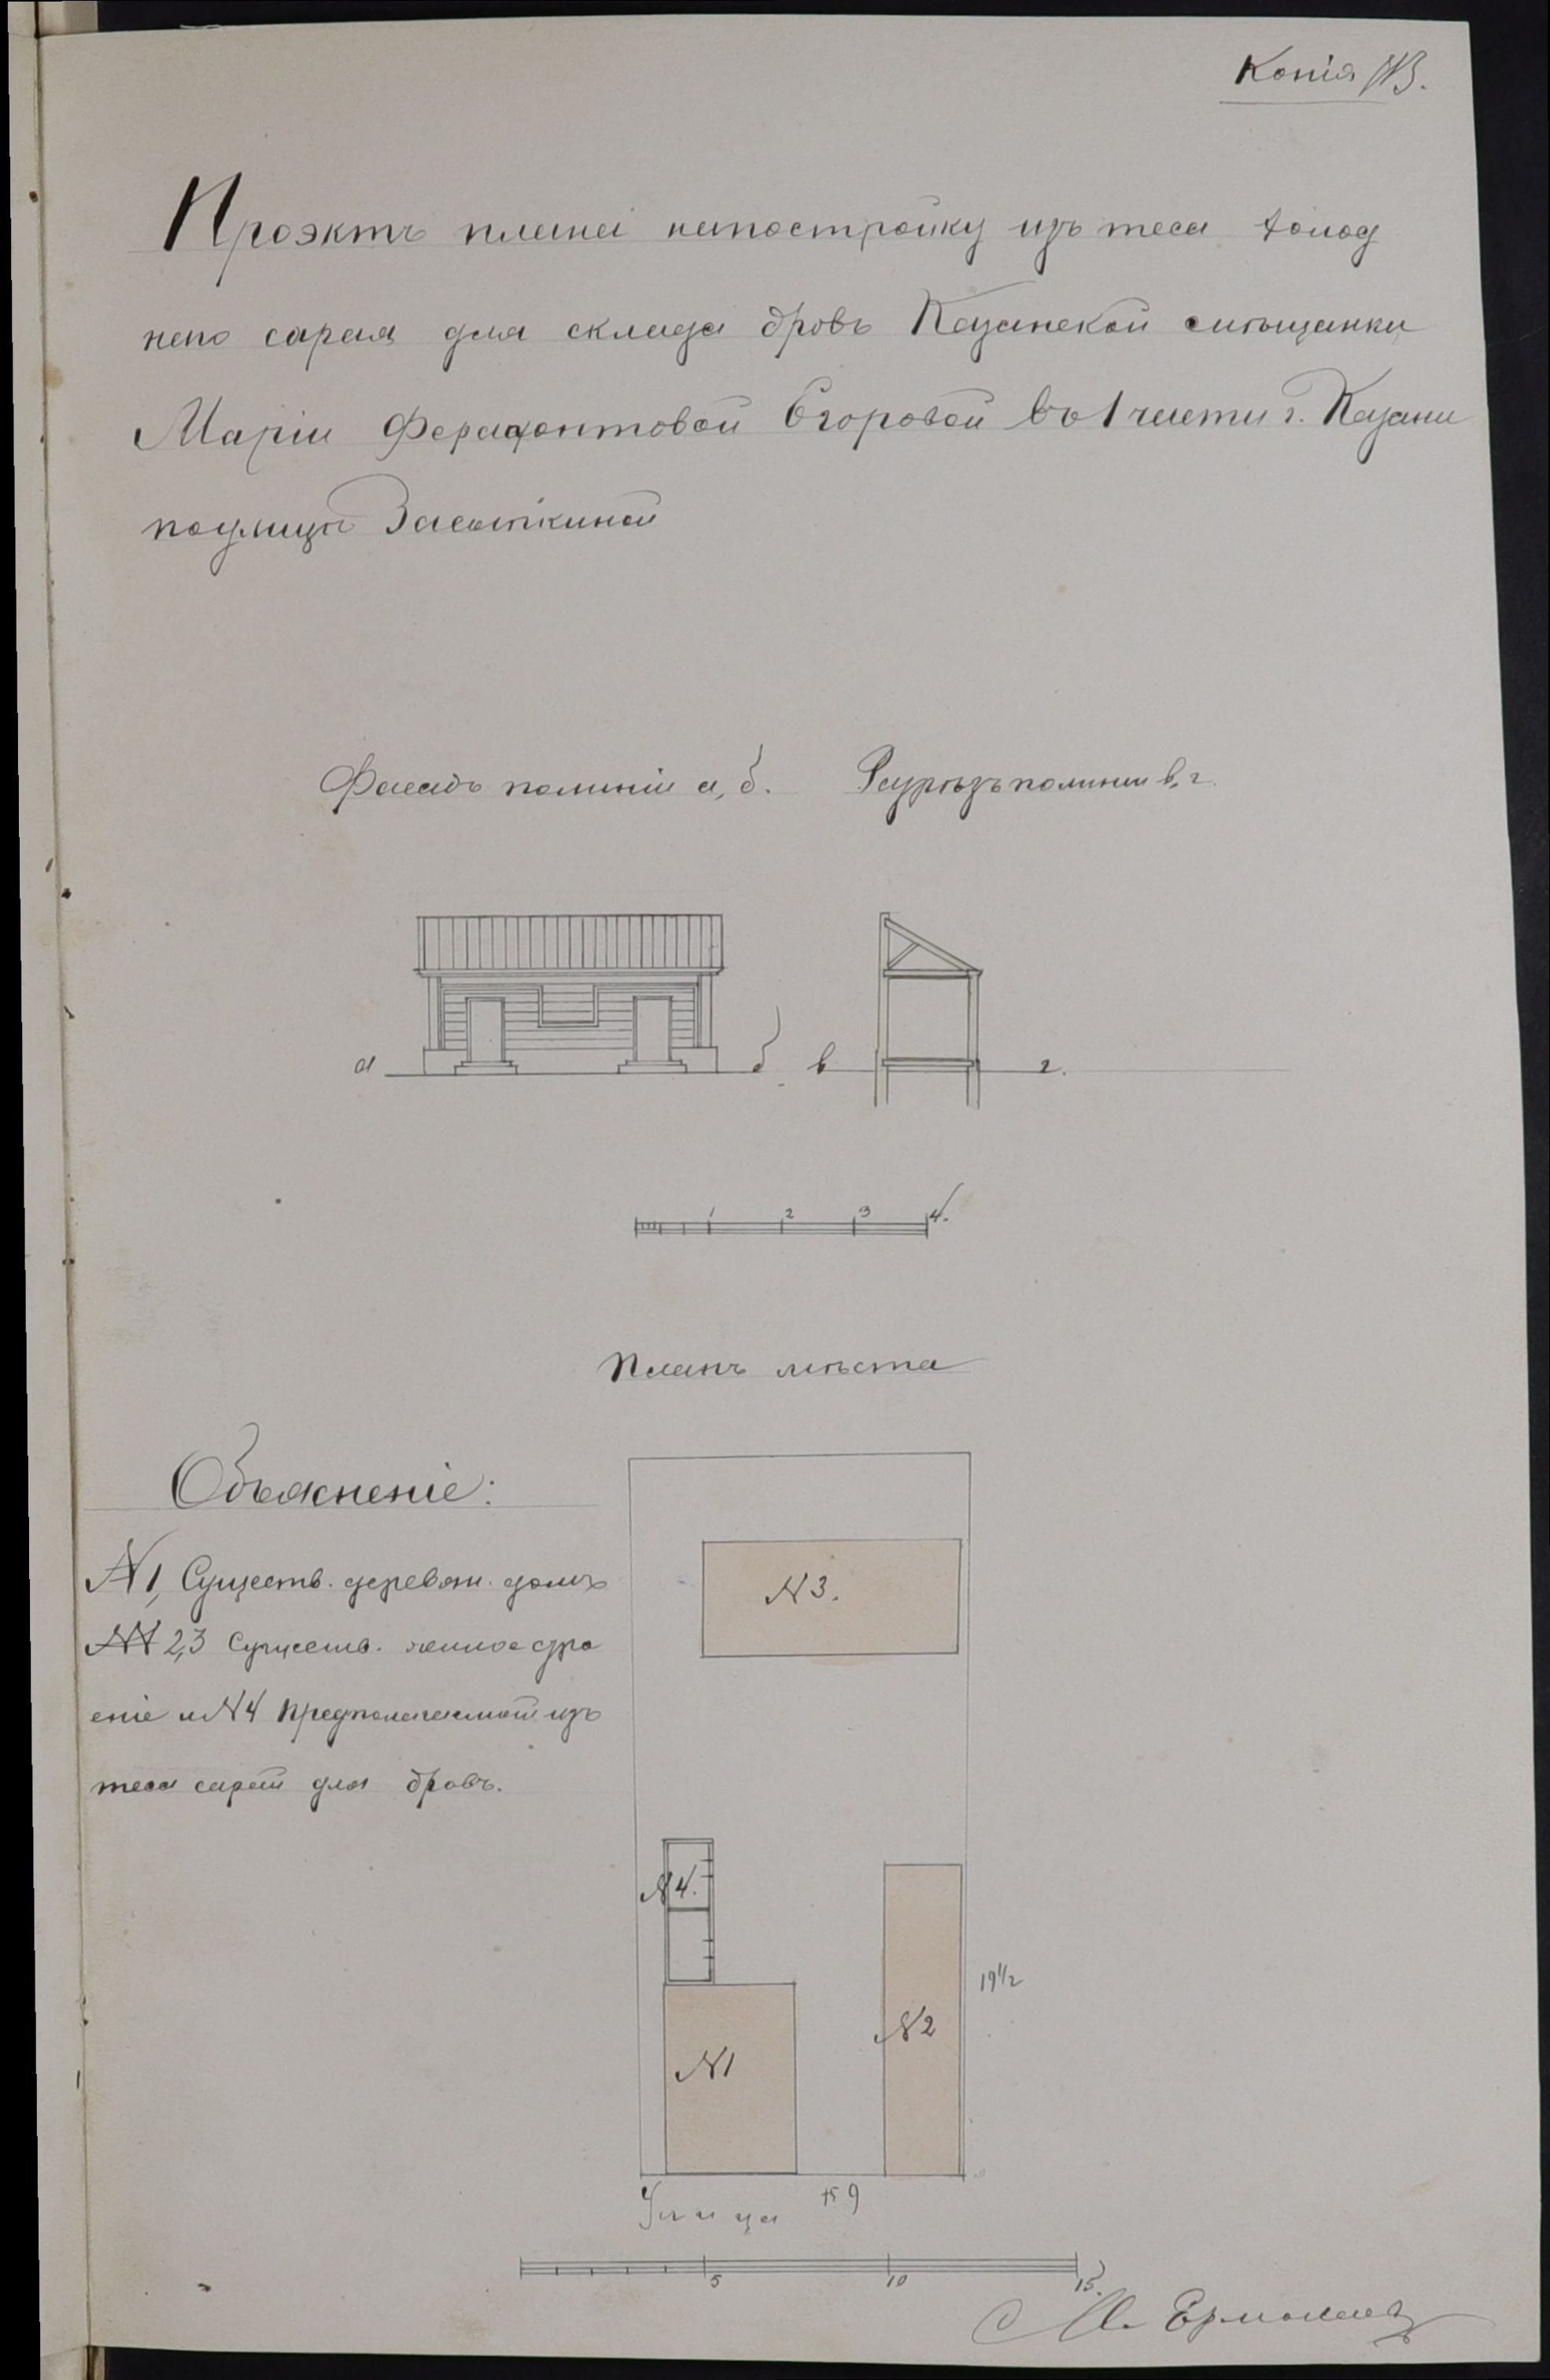 Копія
Проэктъ плана напостройку изъ теса холод
наго сарая для склада дровъ Казанской мѣщанки
Маріи Ферафонтовой Егоровой въ 1 части г. Казани
поулицѣ Засыпкиной
Фасадъ полиніи а, б.
Разрѣзъ полинии в, г.
а
б
в
г.
1 2 3 4.
Планъ мѣста
Объясненіе:
N 1, Существ. деревян. домъ
NN 2,3 Существ. жилое стро
еніе и N4 предполагаемой изъ
теса сарай для дровъ.
N 3.
N 4.
N 2
N 1
19 1/2
Улица
9
5 10 15.
М. Ермолаевъ